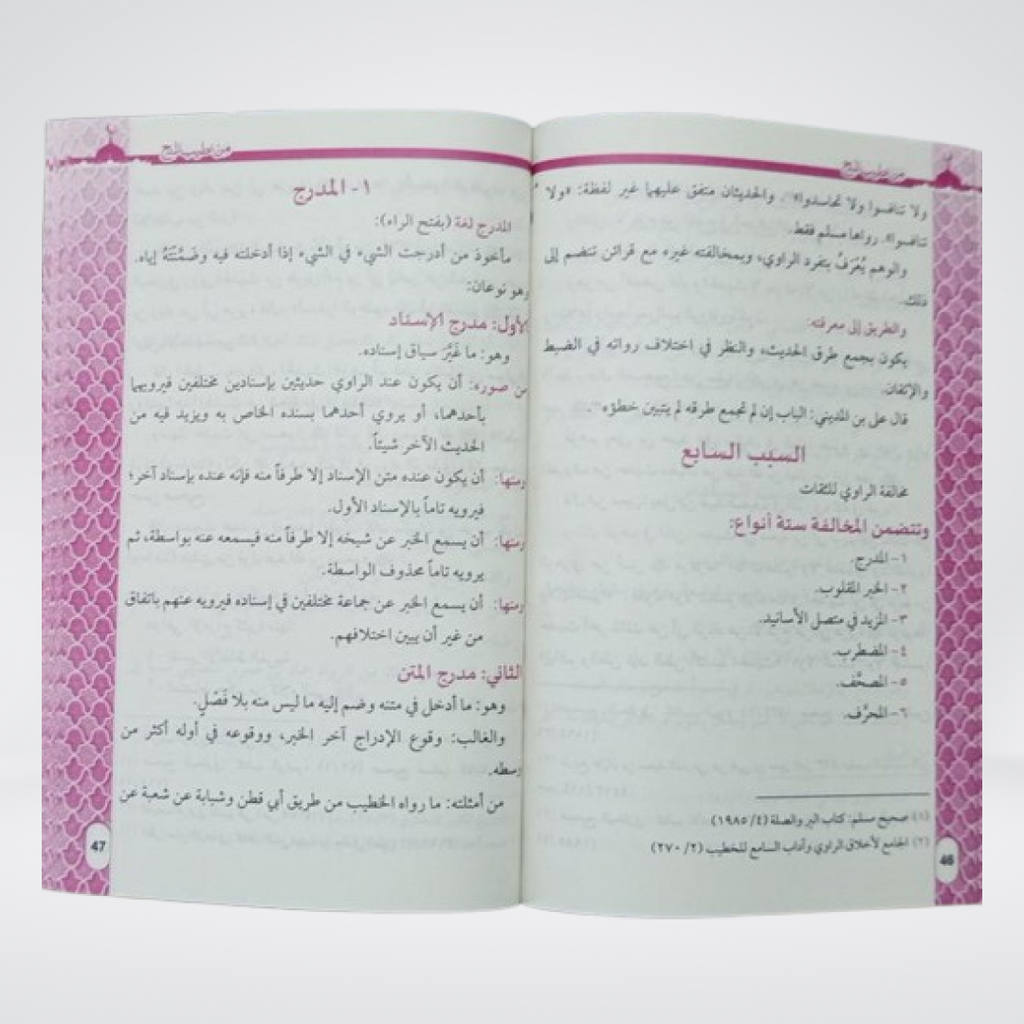 من طيب المنح
ولا تنافسوا ولا تحاسدوا»(١)، والحديثان متفق عليهما غير لفظة: «ولا
تنافسوا». رواها مسلم فقط.
والوهم يُعْرَفُ بتفرد الراوي، وبمخالفته غيره مع قرائن تنضم إلى
ذلك.
والطريق إلى معرفته:
يكون بجمع طرق الحديث، والنظر في اختلاف رواته في الضبط
والإتقان.
قال علي بن المديني: الباب إن لم تجمع طرقه لم يتبين خطؤه(٢)
السبب السابع
مخالفة الراوي للثقات
وتتضمن المخالفة ستة أنواع:
١- المدرج.
٢- الخبر المقلوب.
٣- المزيد في متصل الأسانيد.
٤- المضطرب.
٥- المصحَّف.
٦- المحرَّف.
(١) صحيح مسلم: كتاب البر والصلة (٤/ ١٩٨٥)
(٢) الجامع لأخلاق الراوي وآداب السامع للخطيب (٢/ ٢٧٠)
46
من طيب المنح
١- المدرج
المدرج لغة (بفتح الراء):
مأخوذ من أدرجت الشيء في الشيء إذا أدخلته فيه وضَمَّنْتَهُ إياه.
وهو نوعان:
الأول: مدرج الإسناد
وهو: ما غَيَّرَ سياق إسناده.
من صوره: أن يكون عند الراوي حديثين بإسنادين مختلفين فيرويهما
بأحدهما، أو يروي أحدهما بسنده الخاص به ويزيد فيه من
الحديث الآخر شيئاً.
ومنها: أن يكون عنده متن الإسناد إلا طرفاً منه فإنه عنده بإسناد آخر؛
فيرويه تاماً بالإسناد الأول.
ومنها: أن يسمع الخبر عن شيخه إلا طرفاً منه فيسمعه عنه بواسطة، ثم
يرويه تاماً محذوف الواسطة.
ومنها: أن يسمع الخبر عن جماعة مختلفين في إسناده فيرويه عنهم باتفاق
من غير أن يبين اختلافهم.
الثاني: مدرج المتن
وهو: ما أدخل في متنه وضم إليه ما ليس منه بلا فَصْلٍ.
والغالب: وقوع الإدراج آخر الخبر، ووقوعه في أوله أكثر من
وسطه.
من أمثلته: ما رواه الخطيب من طريق أبي قطن وشبابة عن شعبة عن
47